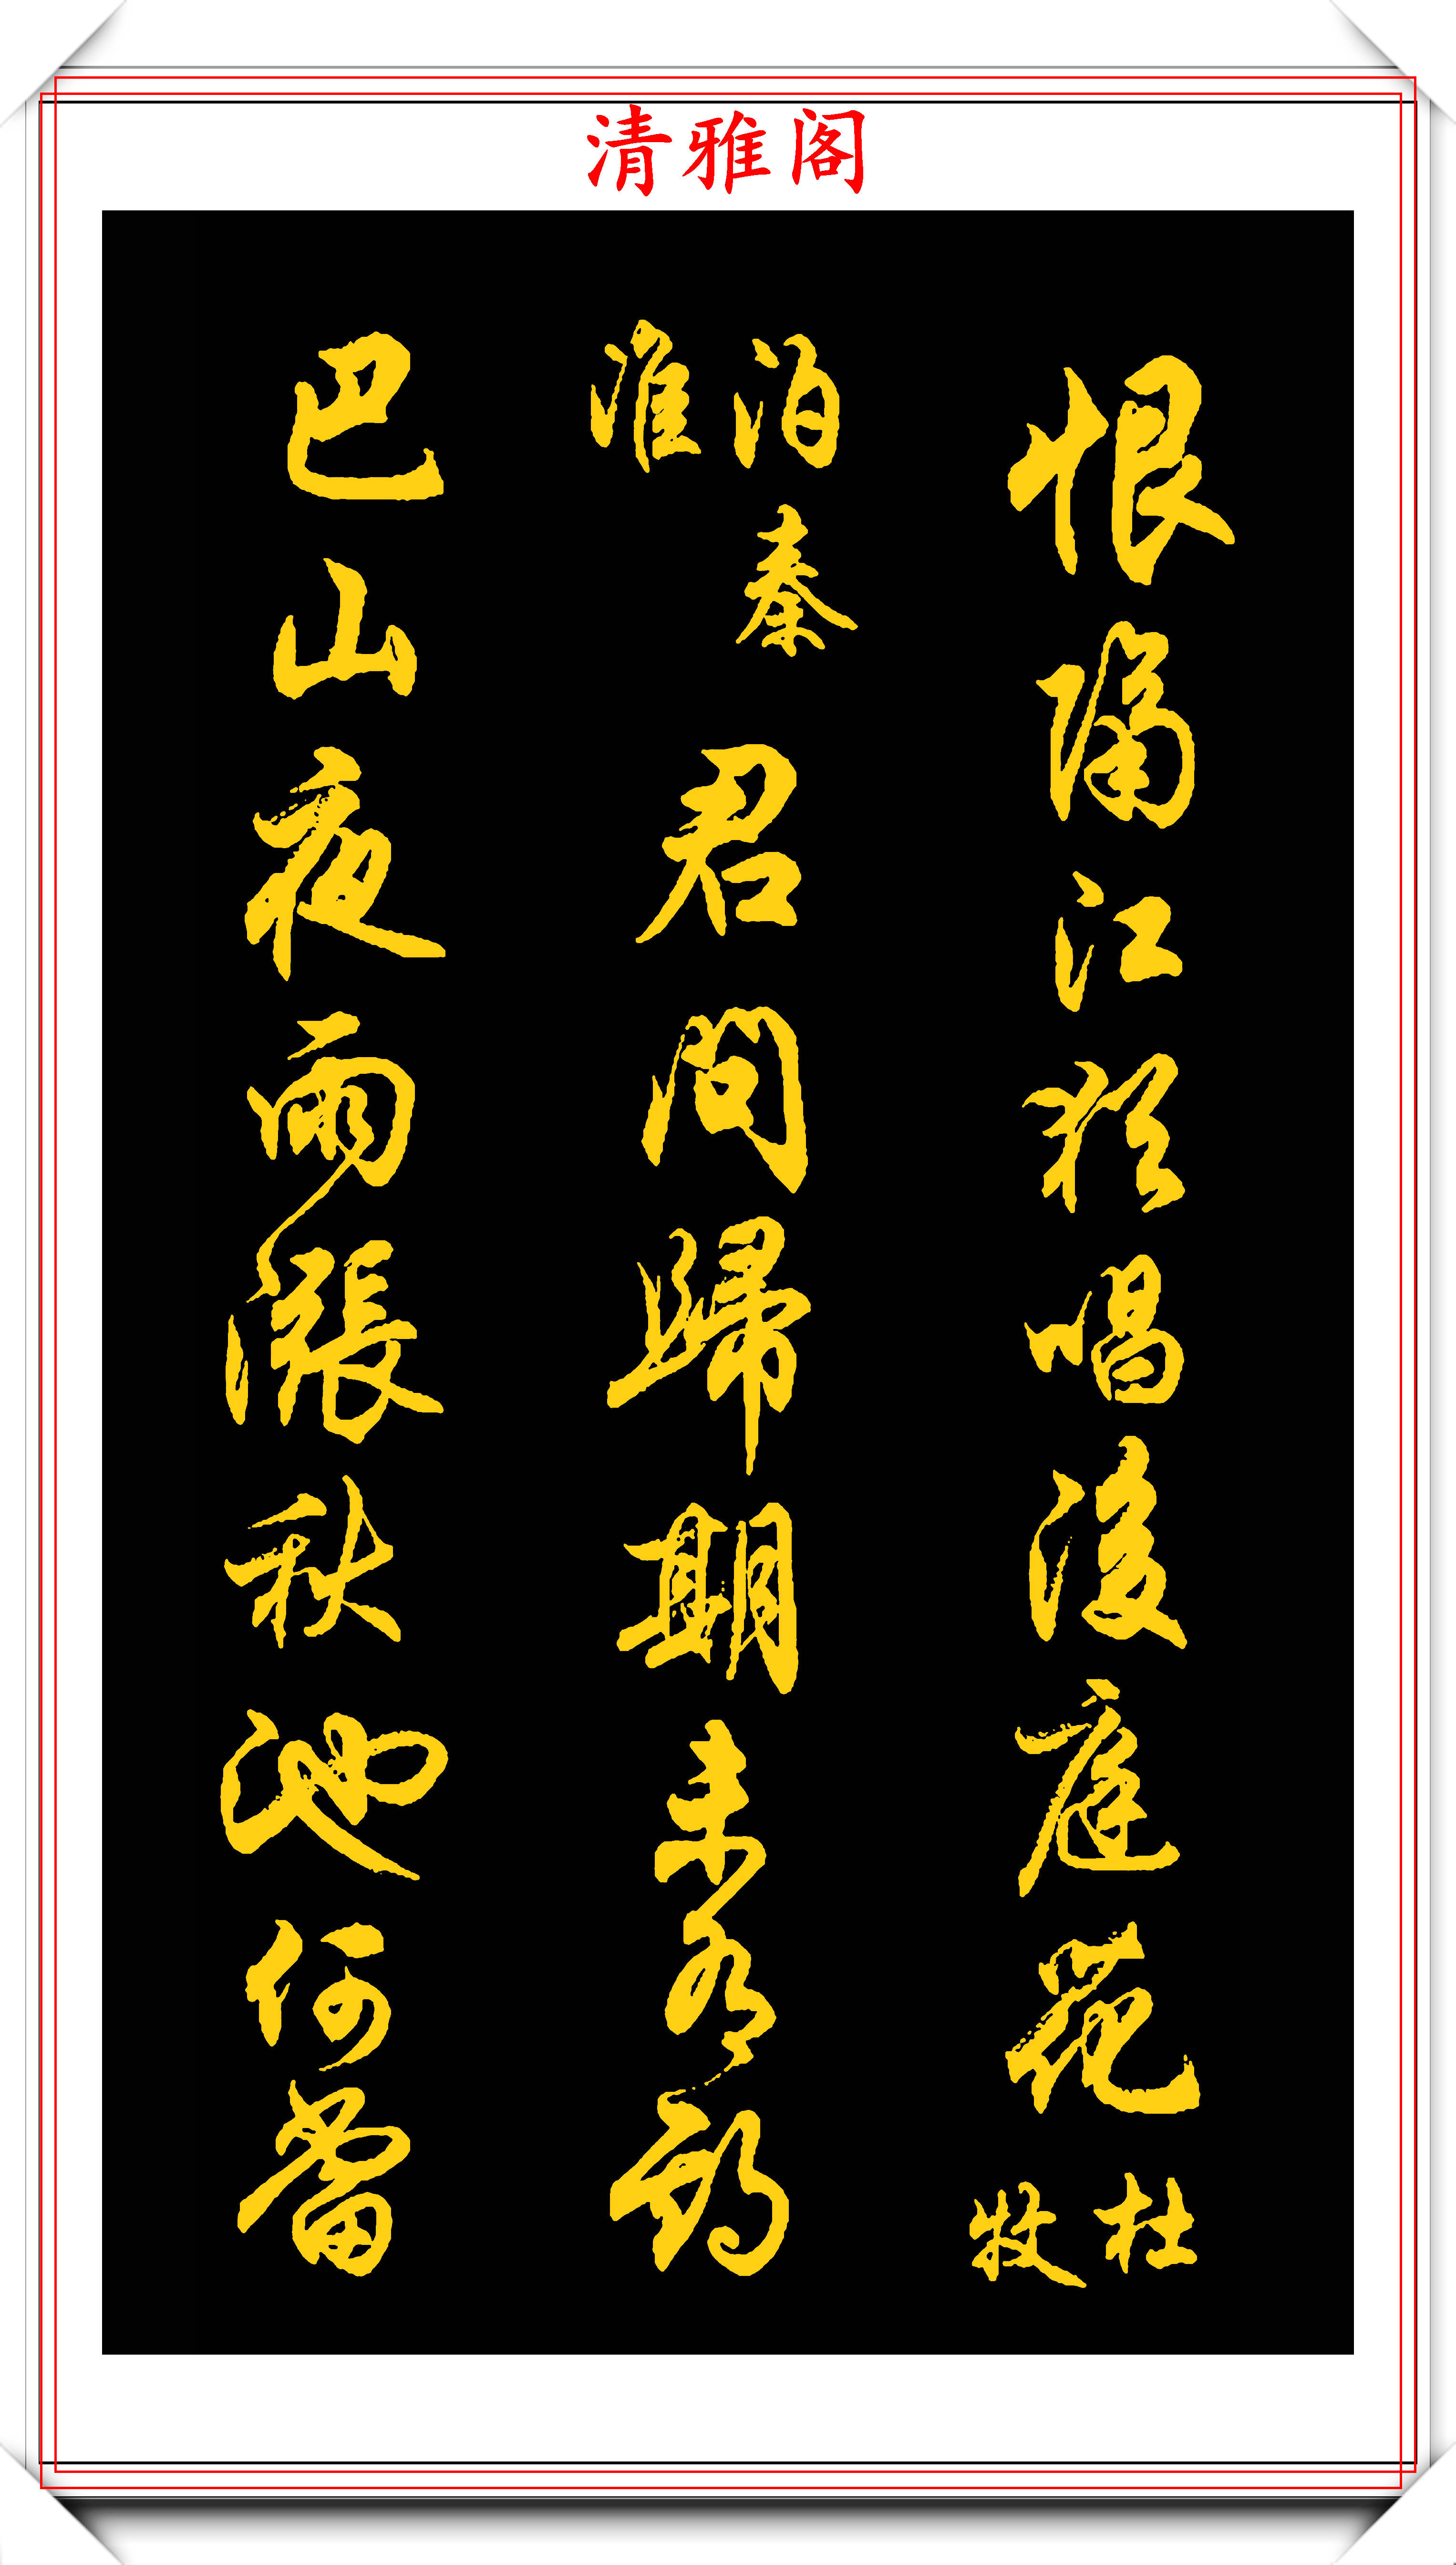 清雅阁
恨隔江猶唱後庭花
杜牧
泊秦淮
君問歸期未有期
巴山夜雨漲秋池何當